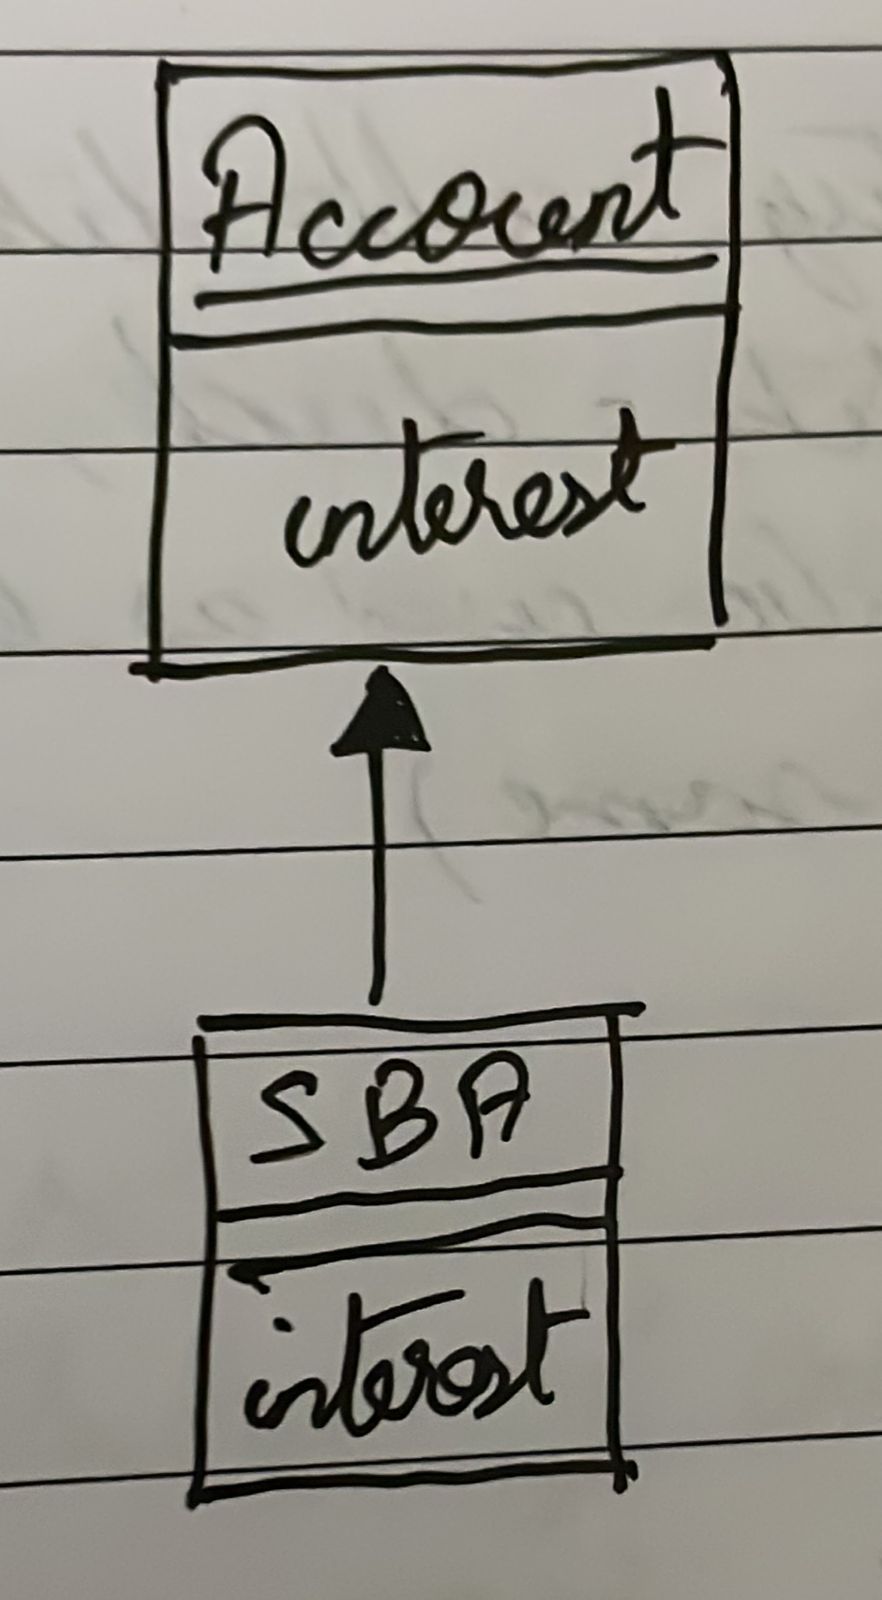 Account
interest
SBA
interest